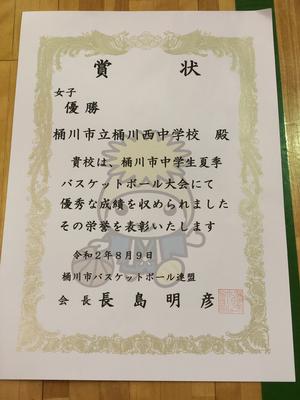 賞状
女子
優勝
桶川市立桶川西中学校 殿
貴校は、桶川市中学生夏季
バスケットボール大会にて
優秀な成績を収められました
その栄誉を表彰いたします
令和2年8月9日
桶川市バスケットボール連盟
会長 長島明彦